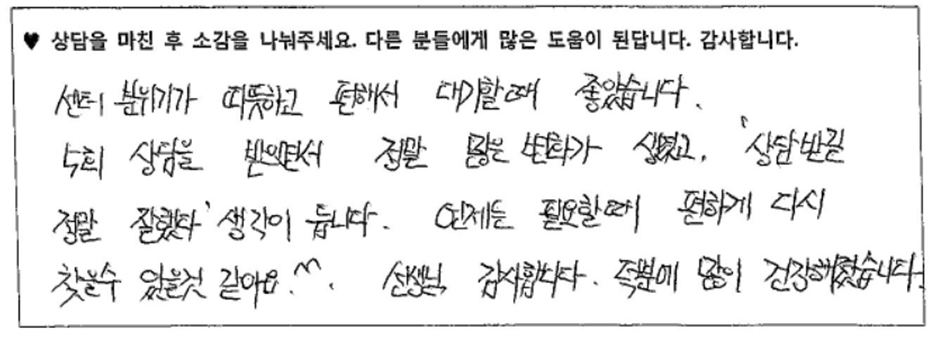 ♥ 상담을 마친 후 소감을 나눠주세요. 다른 분들에게 많은 도움이 된답니다. 감사합니다.
센터 분위기가 따뜻하고 편해서 대기할때 좋았습니다.
5회 상담을 받으면서 정말 많은 변화가 생겼고, '상담받길
정말 잘했다' 생각이 듭니다. 언제든 필요할때 편하게 다시
찾을수 있을것 같아요.^^. 선생님, 감사합니다. 덕분에 많이 건강해졌습니다.